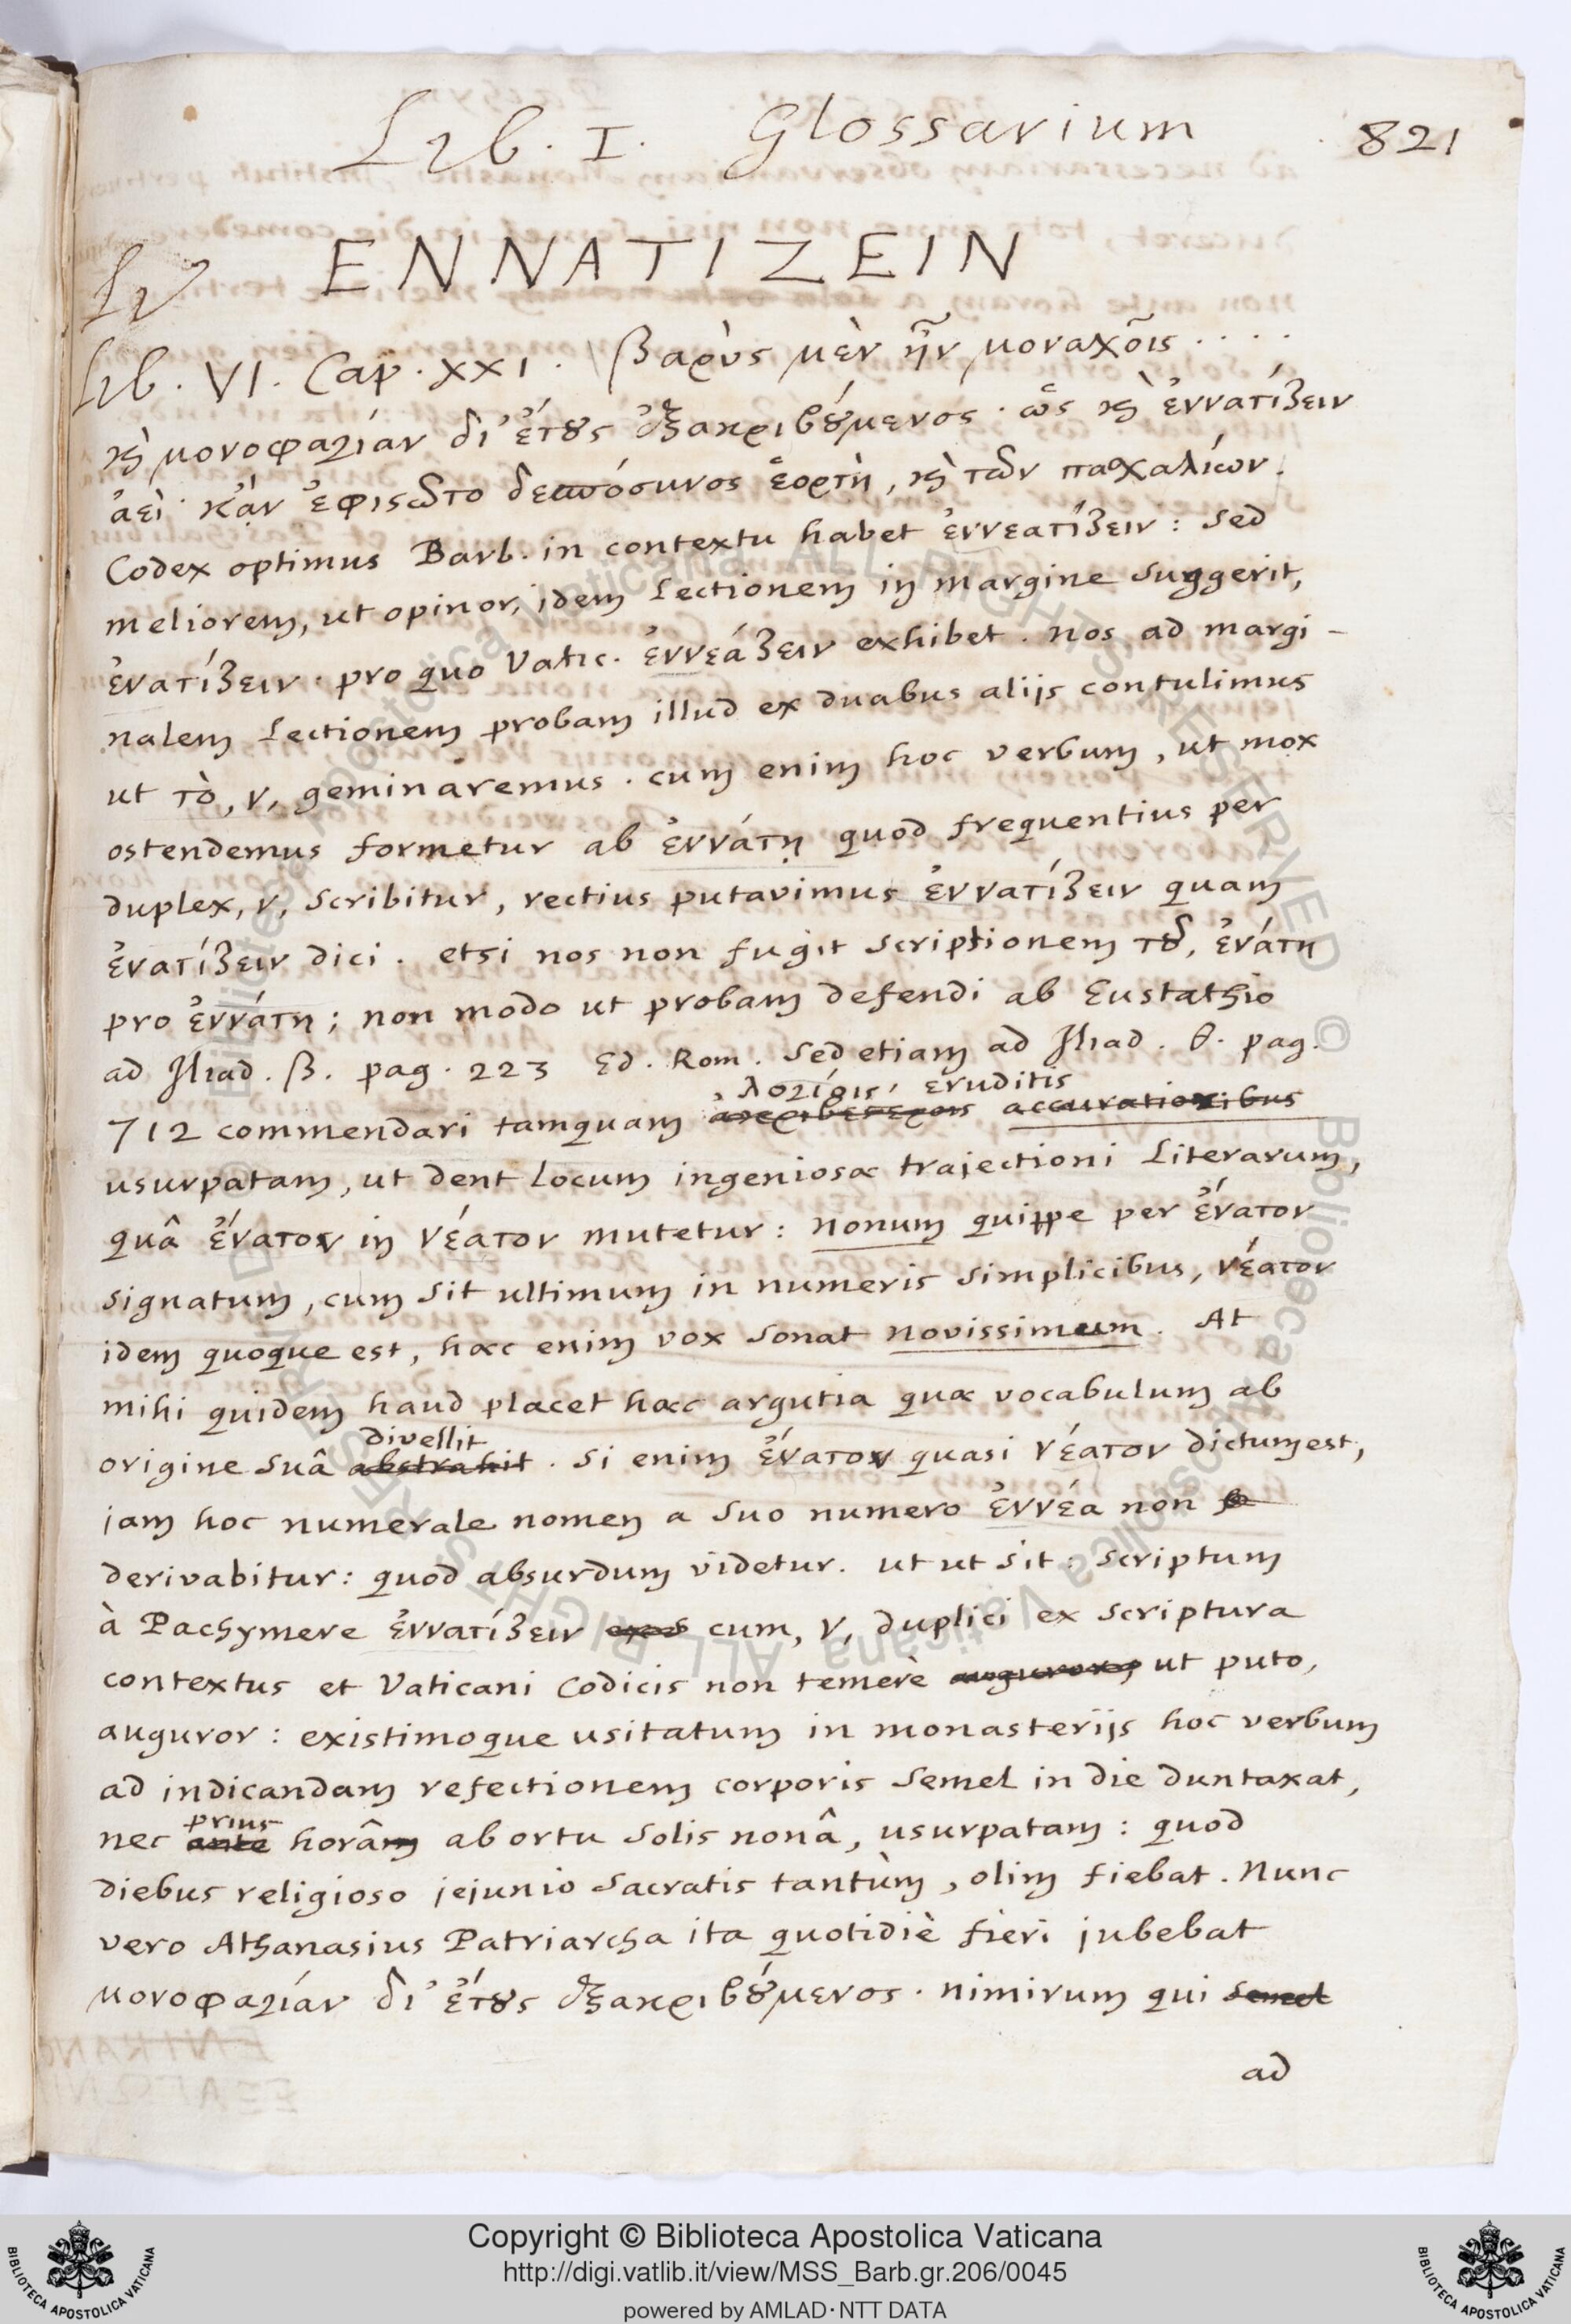 Lib. I. Glossarium 821
LV ENNATIZEIN
Lib. VI. Cap. XXI. βαρὺς μὲν ἦν μοναχοῖς . . . .
καὶ μονοφαγίαν δι' ἔτους ἐξακριβούμενος. ὡς καὶ ἐννατίζειν
ἀεὶ· κἂν ἐφιστῶτο δεσπόσυνος ἑορτὴ, καὶ τῶν πασχαλίων.
Codex optimus Barb. in contextu habet ἐννεατίζειν: sed
meliorem, ut opinor, idem lectionem in margine suggerit,
ἐνατίζειν. pro quo Vatic. ἐννεάζειν exhibet. nos ad margi-
nalem lectionem probam illud ex duabus alijs contulimus
ut τὸ, ν, geminaremus. cum enim hoc verbum, ut mox
ostendemus formetur ab ἐννάτη quod frequentius per
duplex, ν, scribitur, rectius putavimus ἐννατίζειν quam
ἐνατίζειν dici. etsi nos non fugit scriptionem τοῦ, ἐνάτη
pro ἐννάτη; non modo ut probam defendi ab Eustathio
ad Iliad. β. pag. 223 Ed. Rom. sed etiam ad Iliad. θ. pag.
λογίοις, eruditis
712 commendari tamquam ἀκριβεστέροις accuratioribus
usurpatam, ut dent locum ingeniosæ trajectioni literarum,
quâ ἔνατον in νέατον mutetur: nonum quippe per ἔνατον
signatum, cum sit ultimum in numeris simplicibus, νέατον
idem quoque est, hæc enim vox sonat novissimum. At
mihi quidem haud placet hæc argutia quæ vocabulum ab
divellit
origine suâ abstrahit. si enim ἔνατον quasi νέατον dictum est,
jam hoc numerale nomen a suo numero ἐννέα non
derivabitur: quod absurdum videtur. ut ut sit: scriptum
à Pachymere ἐννατίζειν cum, ν, duplici ex scriptura
contextus et Vaticani codicis non temerè auguror, ut puto,
auguror: existimoque usitatum in monasterijs hoc verbum
ad indicandam refectionem corporis semel in die duntaxat,
prius
nec ante horâm ab ortu solis nonâ, usurpatam: quod
diebus religioso jejunio sacratis tantùm, olim fiebat. Nunc
vero Athanasius Patriarcha ita quotidiè fieri jubebat
μονοφαγίαν δι' ἔτους ἐξακριβούμενος. nimirum qui semel
ad
Copyright © Biblioteca Apostolica Vaticana
http://digi.vatlib.it/view/MSS_Barb.gr.206/0045
powered by AMLAD·NTT DATA
BIBLIOTECA APOSTOLICA VATICANA
BIBLIOTECA APOSTOLICA VATICANA